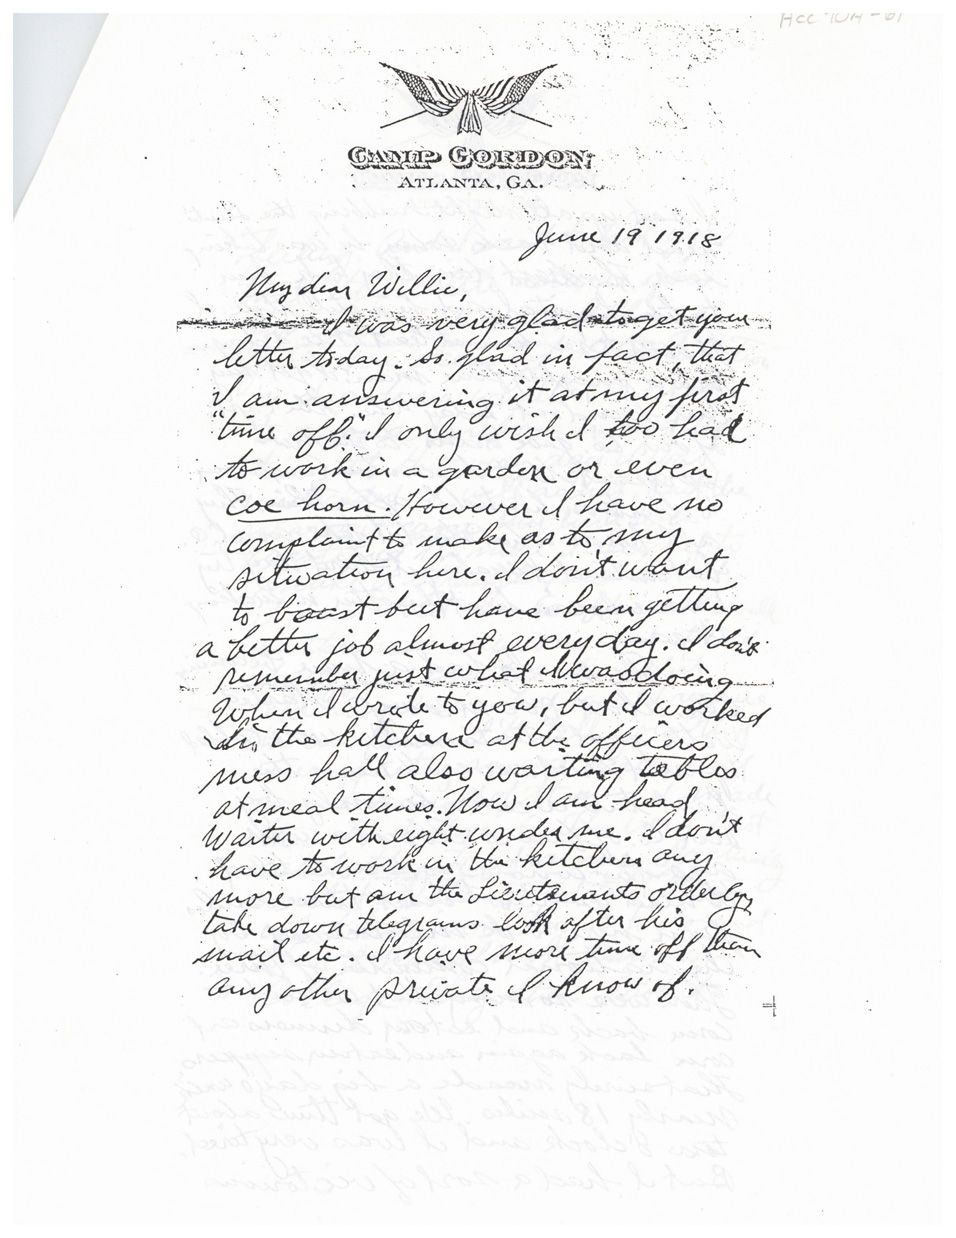 CAMP GORDON
ATLANTA, GA.
June 19 1918
My dear Willie,
I was very glad to get your
letter today. So glad in fact, that
I am answering it at my first
"time off." I only wish I too had
to work in a garden or even
coe horn. However I have no
complaint to make as to my
situation here. I don't want
to boast but have been getting
a better job almost every day. I don't
remember just what I was doing
when I wrote to you, but I worked
in the kitchen at the officers
mess hall also waiting tables
at meal times. Now I am head
waiter with eight under me. I don't
have to work in the kitchen any
more but am the Lieutenants orderly,
take down telegrams look after his
mail etc. I have more time off than
any other private I know of.